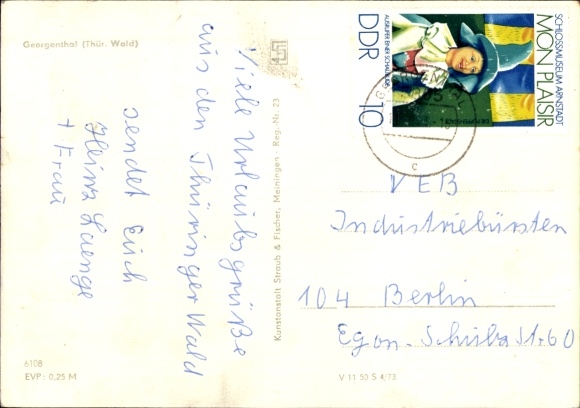 Georgenthal (Thür. Wald)
Viele Urlaubsgrüße
aus den Thüringer Wald
sendet Euch
Heinz Laenge
+ Frau
6108
EVP: 0,25 M
Kunstanstalt Straub & Fischer, Meiningen - Reg. Nr. 23
V 11 50 S 4/73
SCHLOSSMUSEUM ARNSTADT
MON PLAISIR
DIE PUPPENSTADT
AUSRUFER EINER SCHAUBUDE
DDR 10
VEB
Industriebürsten
104 Berlin
Egon-Schulz Str. 60